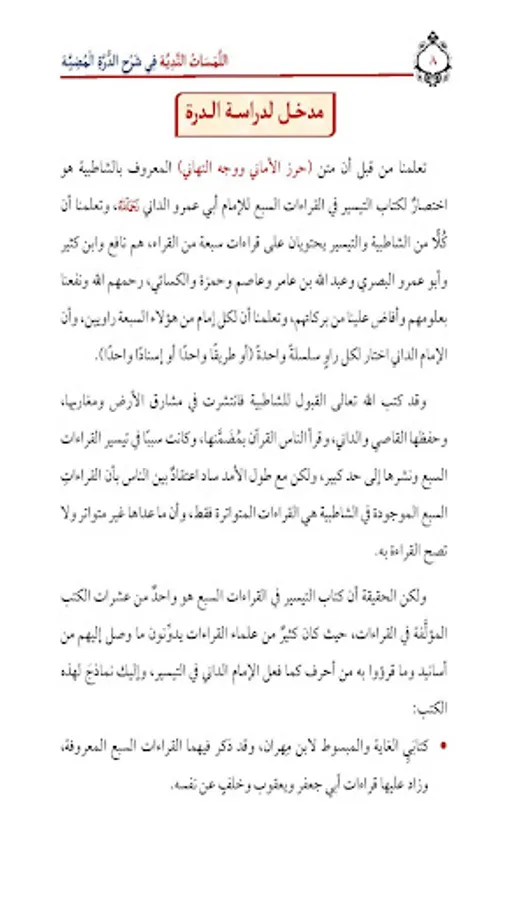 اللَّمَسَاتُ النَّدِيَّة فِي شَرْحِ الدُّرَّةِ الْمُضِيَّة
٨
مدخل لدراسة الدرة
تعلمنا من قبل أن متن (حرز الأماني ووجه التهاني) المعروف بالشاطبية هو
اختصارٌ لكتاب التيسير في القراءات السبع للإمام أبي عمرو الداني رَحِمَهُ ٱللَّهُ، وتعلمنا أن
كُلًّا من الشاطبية والتيسير يحتويان على قراءات سبعة من القراء، هم نافع وابن كثير
وأبو عمرو البصري وعبد الله بن عامر وعاصم وحمزة والكسائي، رحمهم الله ونفعنا
بعلومهم وأفاض علينا من بركاتهم، وتعلمنا أن لكل إمام من هؤلاء السبعة راويين، وأن
الإمام الداني اختار لكل راوٍ سلسلةً واحدةً (أو طريقًا واحدًا أو إسنادًا واحدًا).
وقد كتب الله تعالى القبول للشاطبية فانتشرت في مشارق الأرض ومغاربها،
وحفظها القاصي والداني، وقرأ الناس القرآن بمُضَمَّنها، وكانت سببًا في تيسير القراءات
السبع ونشرها إلى حد كبير، ولكن مع طول الأمد ساد اعتقادٌ بين الناس بأن القراءاتِ
السبع الموجودة في الشاطبية هي القراءات المتواترة فقط، وأن ما عداها غير متواتر ولا
تصح القراءة به.
ولكن الحقيقة أن كتاب التيسير في القراءات السبع هو واحدٌ من عشرات الكتب
المؤلَّفة في القراءات، حيث كان كثيرٌ من علماء القراءات يدوِّنون ما وصل إليهم من
أسانيد وما قرؤوا به من أحرف كما فعل الإمام الداني في التيسير، وإليك نماذجَ لهذه
الكتب:
• كتابَيِ الغاية والمبسوط لابن مِهران، وقد ذكر فيهما القراءات السبع المعروفة،
وزاد عليها قراءات أبي جعفر ويعقوب وخلفٍ عن نفسه.